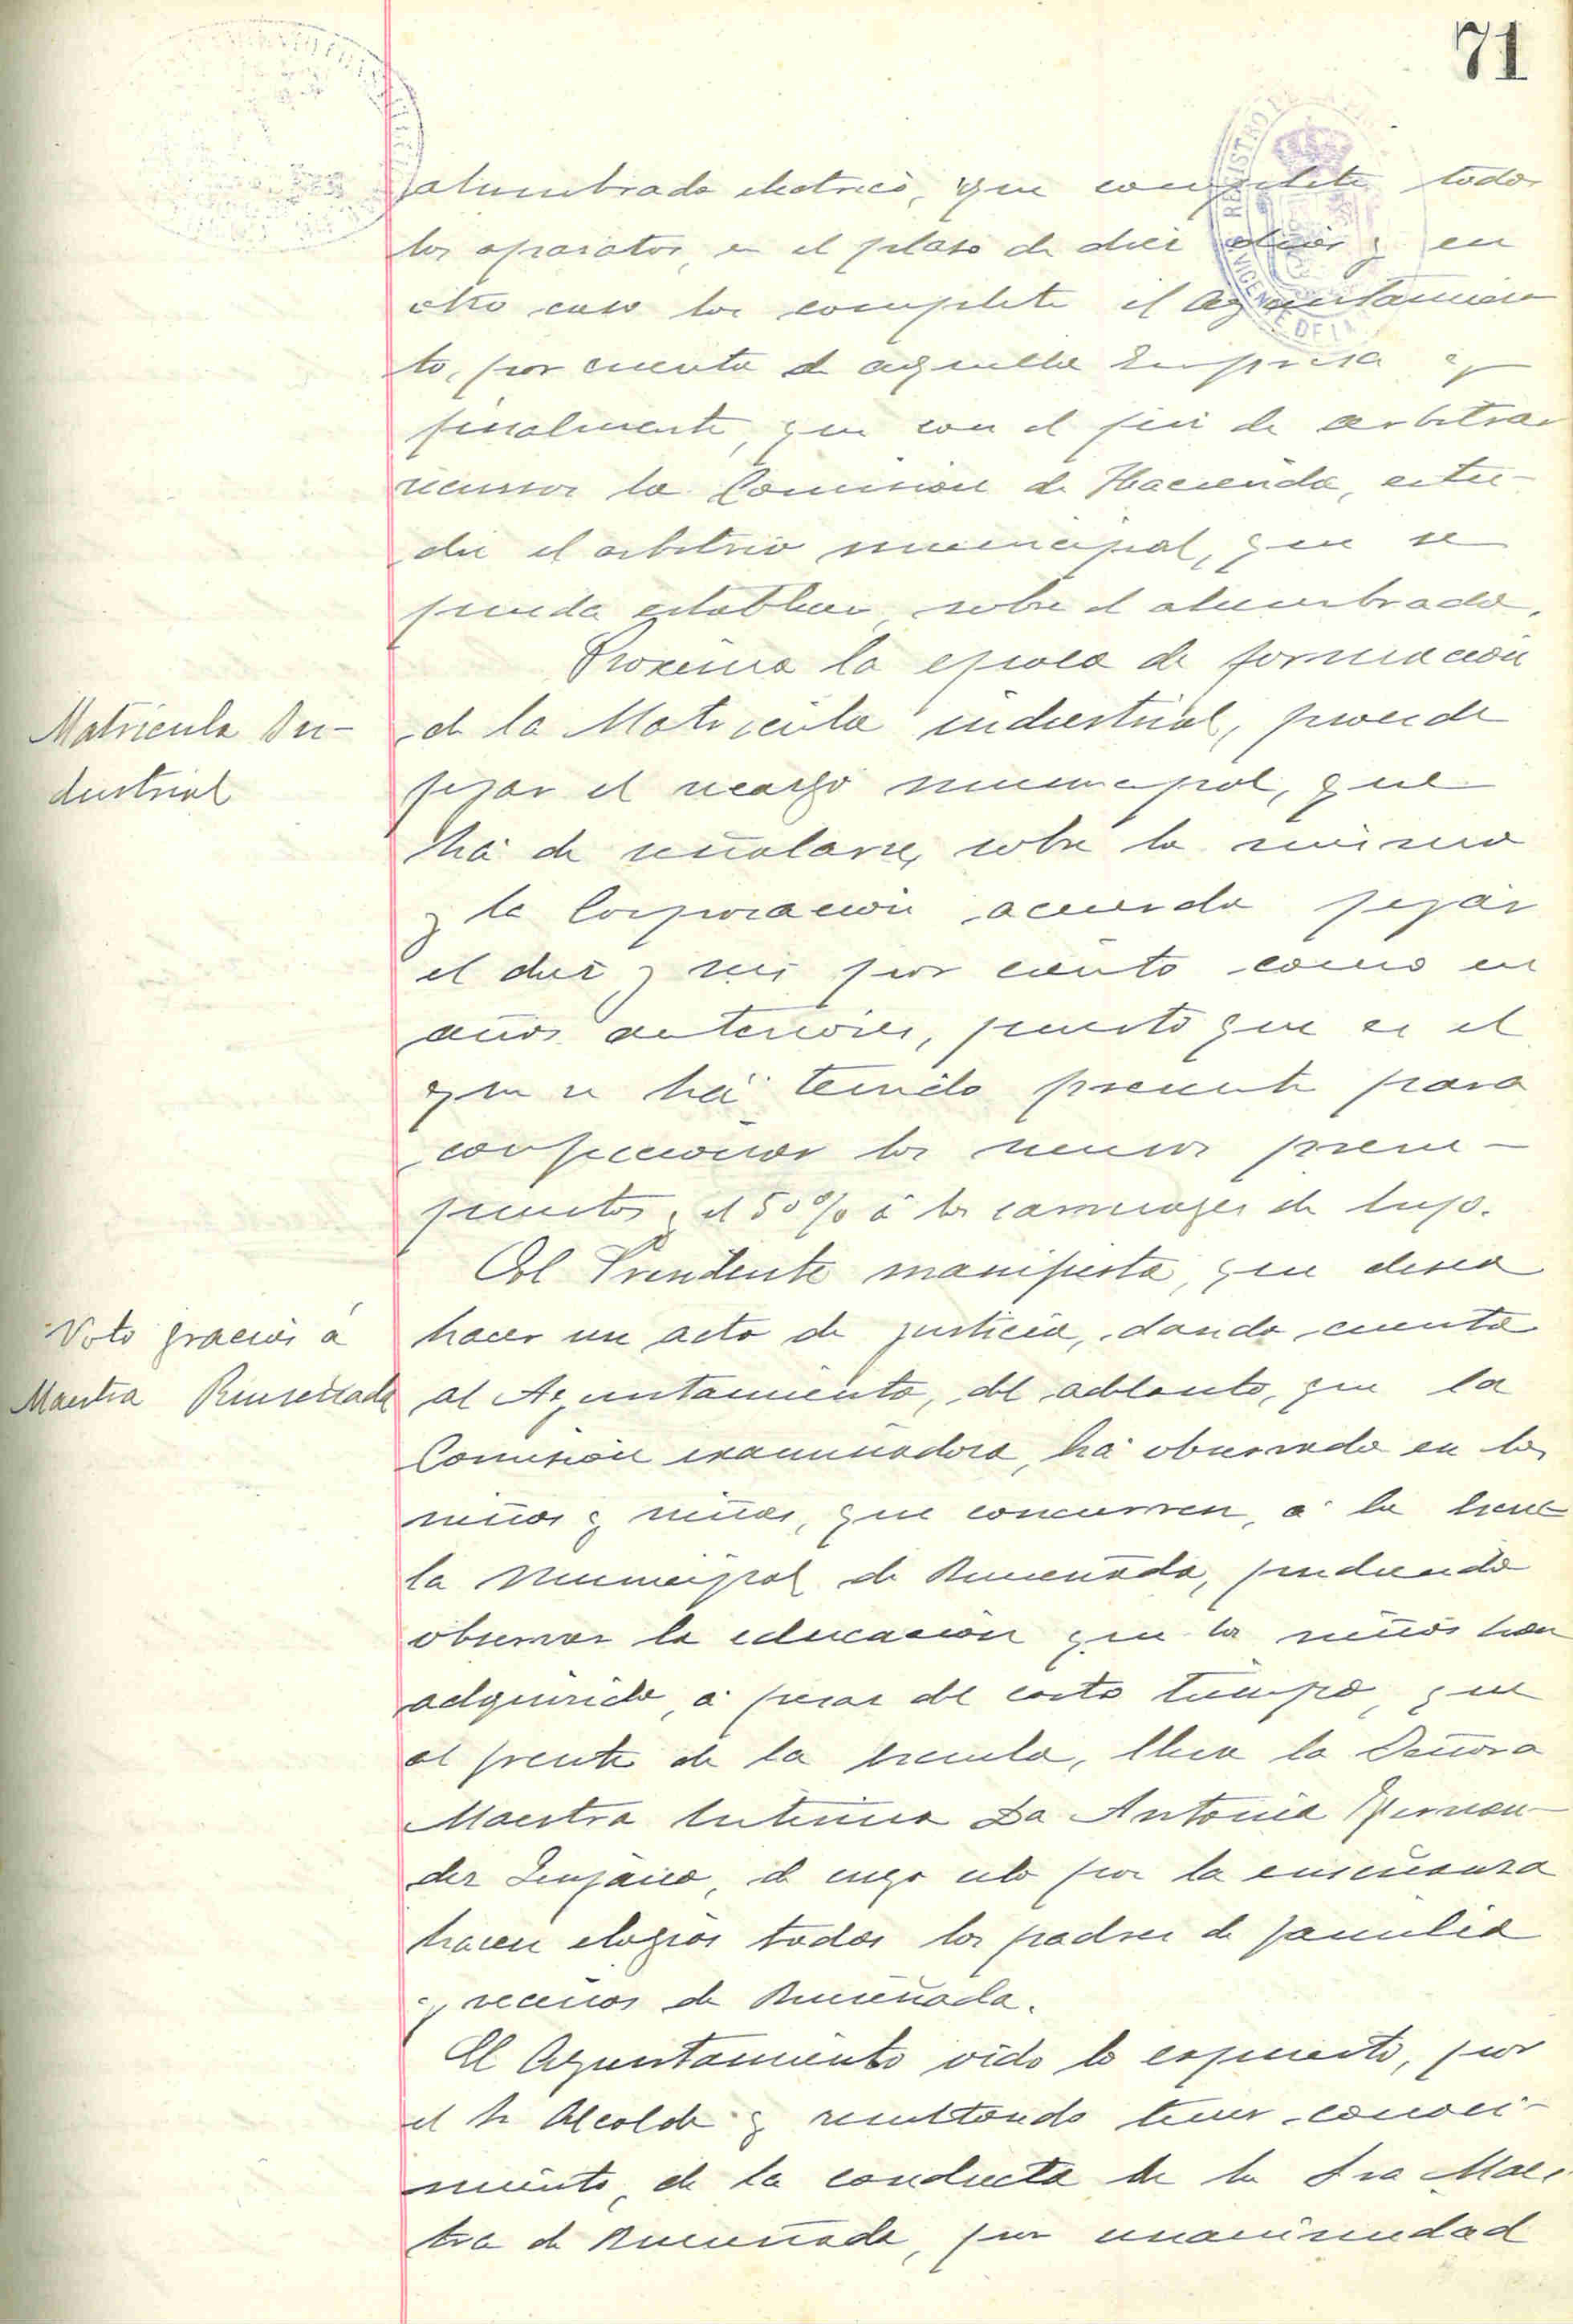 71
alumbrado electrico, que complete todos
los aparatos, en el plaso de diez dias y en
otro caso los complete el Ayuntamien
to, por cuenta de aquella Empresa y
finalmente, que con el fin de arbitrar
recursos la Comision de Hacienda, estu-
die el arbitrio municipal, que se
pueda establecer, sobre el alumbrado.
Proxima la epoca de formacion
Matricula In-
dustrial
de la Matricula industrial, procede
fijar el recargo municipal, que
há de señalarse, sobre la misma
y la Corporacion acuerda fijar
el diez y seis por ciento como en
años anteriores, puesto que es el
que se há tenido presente para
confeccionar los nuevos presu-
puestos y el 50% á los carruages de lujo.
El Presidente manifiesta, que desea
Voto gracias á
Maestra Ruiseñada
hacer un acto de justicia, dando cuenta
al Ayuntamiento, del adelanto, que la
Comision examinadora, há observado en los
niños y niñas, que concurren, á la Escue
la Municipal de Ruiseñada, pudiendo
observar la educacion que los niños han
adquirido, á pesar del corto tiempo, que
al frente de la Escuela, lleva la Señora
Maestra Interina Da Antonia Fernan-
dez, de cuyo celo por la enseñanza
hacen elogios todos los padres de familia
y vecinos de Ruiseñada.
El Ayuntamiento oido lo expuesto, por
el Sr Alcalde y resultando tener conoci-
miento, de la conducta de la Sra Maes
tra de Ruiseñada, por unanimidad